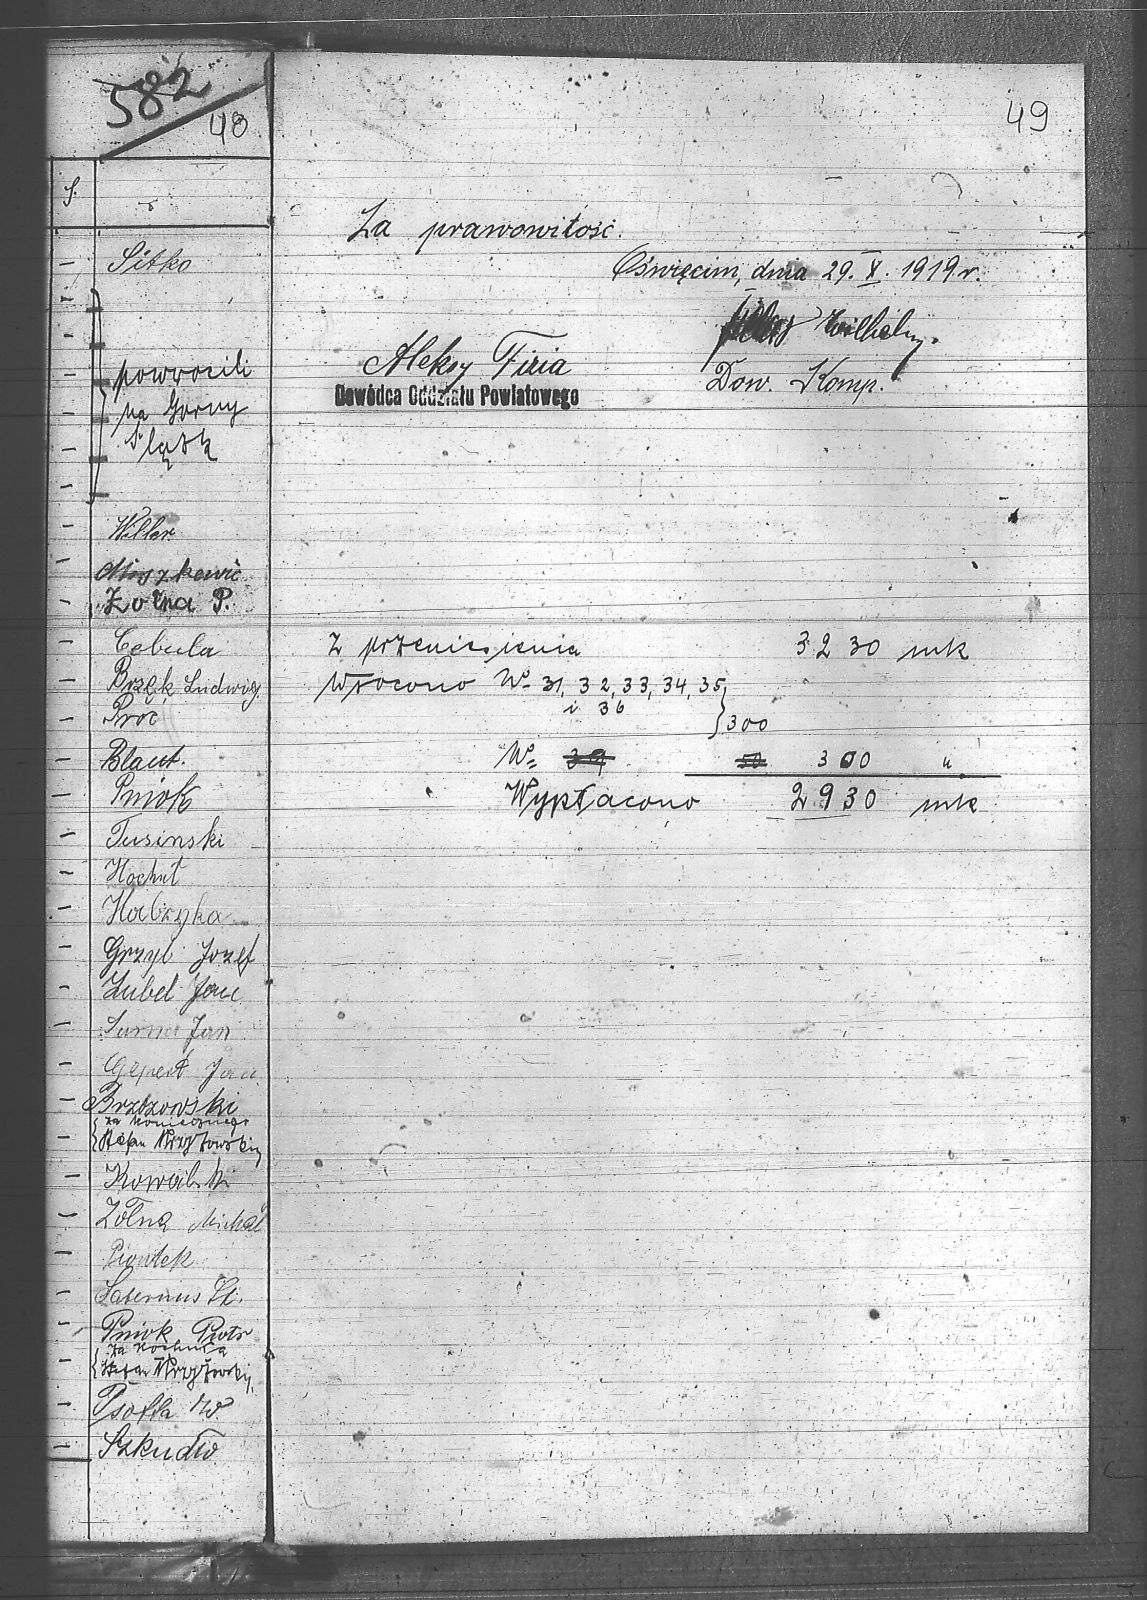 582
48
S.
Sitko
powrócili
na Gorny
Śląsk
Willer
Zołna P.
Cebula
Brzęk Ludwog.
Proc
Blaut.
Pniok
Tusinski
Hochuł
Kabzyka
Grzyb Jozef
Zubel Jan
Sarna Jan
Gepert Jan
Brzozowski
za Koniecznego
Stefan Krzyżowski
Kowalski
Żołna Michał
Piontek
Saternus St.
Pniok Piotr
za Kochuka
Stefan Krzyżowski
Psotta W.
Szkudło
49
Za prawowitość.
Oświęcim, dnia 29. X. 1919 r.
Wilhelm.
Aleksy Firia
Dow. Komp.
Dowódca Oddziału Powiatowego
Z przeniesienia 3230 mk
Wrócono No 31, 32, 33, 34, 35,
i 36
} 300
No 39 50 300 "
Wypłacono 2930 mk